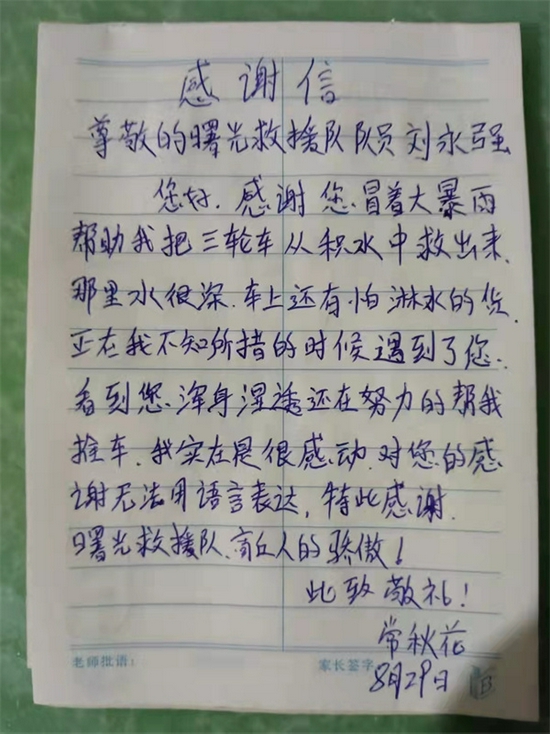 感谢信
尊敬的曙光救援队队员刘永强
您好.感谢您.冒着大暴雨
帮助我把三轮车从积水中救出来.
那里水很深.车上还有怕淋水的货.
正在我不知所措的时候遇到了您.
看到您.浑身湿透还在努力的帮我
推车.我实在是很感动.对您的感
谢无法用语言表达,特此感谢.
曙光救援队.商丘人的骄傲!
此致敬礼!
常秋花
老师批语:
家长签字
8月29日